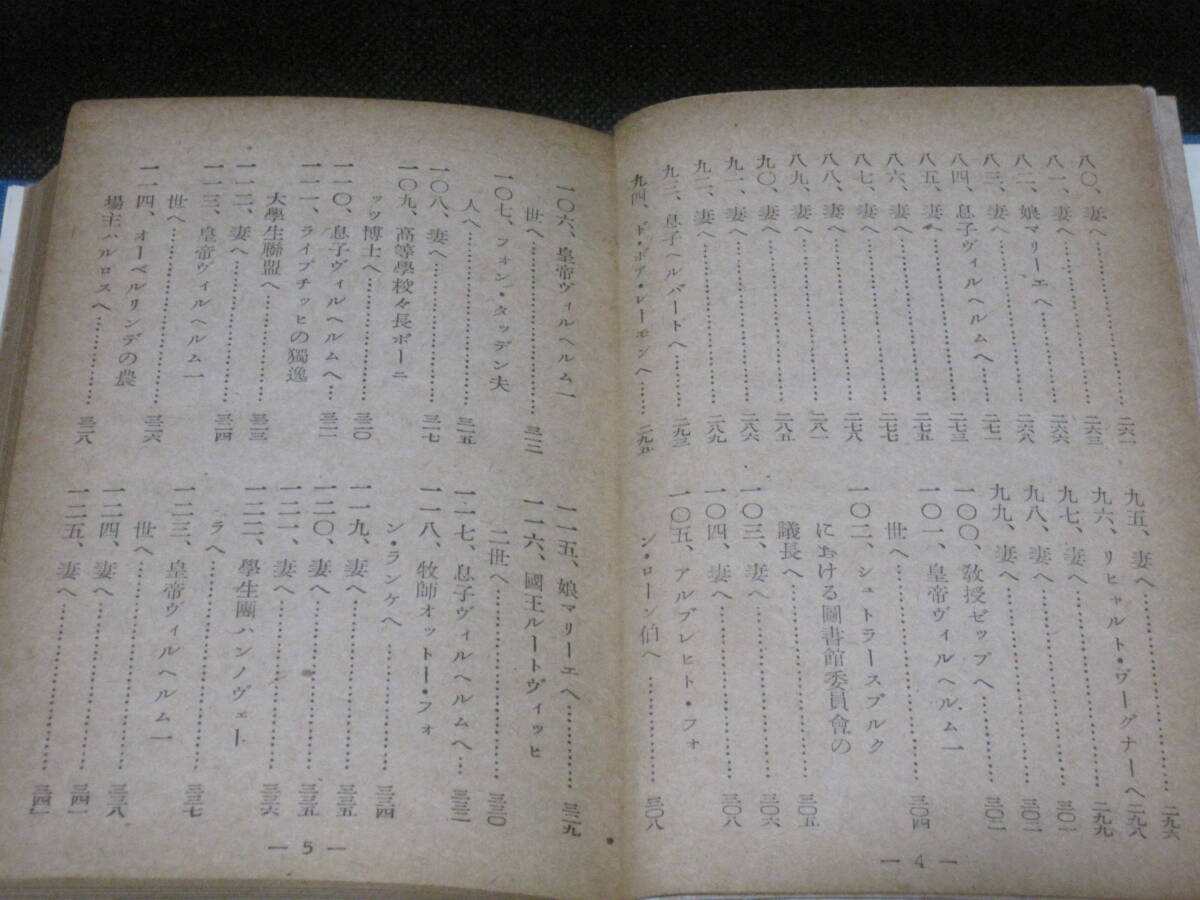 八〇、妻へ…………二六一
八一、妻へ…………二六三
八二、娘マリーエへ…………二六六
八三、妻へ…………二六八
八四、息子ヴィルヘルムへ…………二七一
八五、妻へ…………二七三
八六、妻へ…………二七五
八七、妻へ…………二七七
八八、妻へ…………二七八
八九、妻へ…………二八一
九〇、妻へ…………二八五
九一、妻へ…………二八六
九二、妻へ…………二八九
九三、息子ヘルバートへ…………二九三
九四、ド・ボア・レーモンへ…………二九五
九五、妻へ…………二九六
九六、リヒャルト・ヴーグナーへ…二九八
九七、妻へ…………二九九
九八、妻へ…………三〇一
九九、妻へ…………三〇二
一〇〇、教授ゼップへ…………三〇二
一〇一、皇帝ヴィルヘルム一
世へ…………三〇四
一〇二、シュトラースブルク
における圖書館委員會の
議長へ…………三〇五
一〇三、妻へ…………三〇六
一〇四、妻へ…………三〇八
一〇五、アルブレヒト・フォ
ン・ローン伯へ…………三〇八
— 4 —
一〇六、皇帝ヴィルヘルム一
世へ…………三一二
一〇七、フォン・タッデン夫
人へ…………三一五
一〇八、妻へ…………三一七
一〇九、高等學校々長ボーニ
ッツ博士へ…………三二〇
一一〇、息子ヴィルヘルムへ…………三二一
一一一、ライプチッヒの獨逸
大學生聯盟へ…………三二三
一一二、妻へ…………三二四
一一三、皇帝ヴィルヘルム一
世へ…………三二六
一一四、オーベルリンデの農
場主ハルロスへ…………三二八
一一五、娘マリーエへ…………三二九
一一六、國王ルートヴィッヒ
二世へ…………三三〇
一一七、息子ヴィルヘルムへ…三三二
一一八、牧師オットー・フォ
ン・ランケへ…………三三四
一一九、妻へ…………三三五
一二〇、妻へ…………三三五
一二一、妻へ…………三三六
一二二、學生團ハンノヴェー
ラへ…………三三七
一二三、皇帝ヴィルヘルム一
世へ…………三三八
一二四、妻へ…………三四一
一二五、妻へ…………三四一
— 5 —